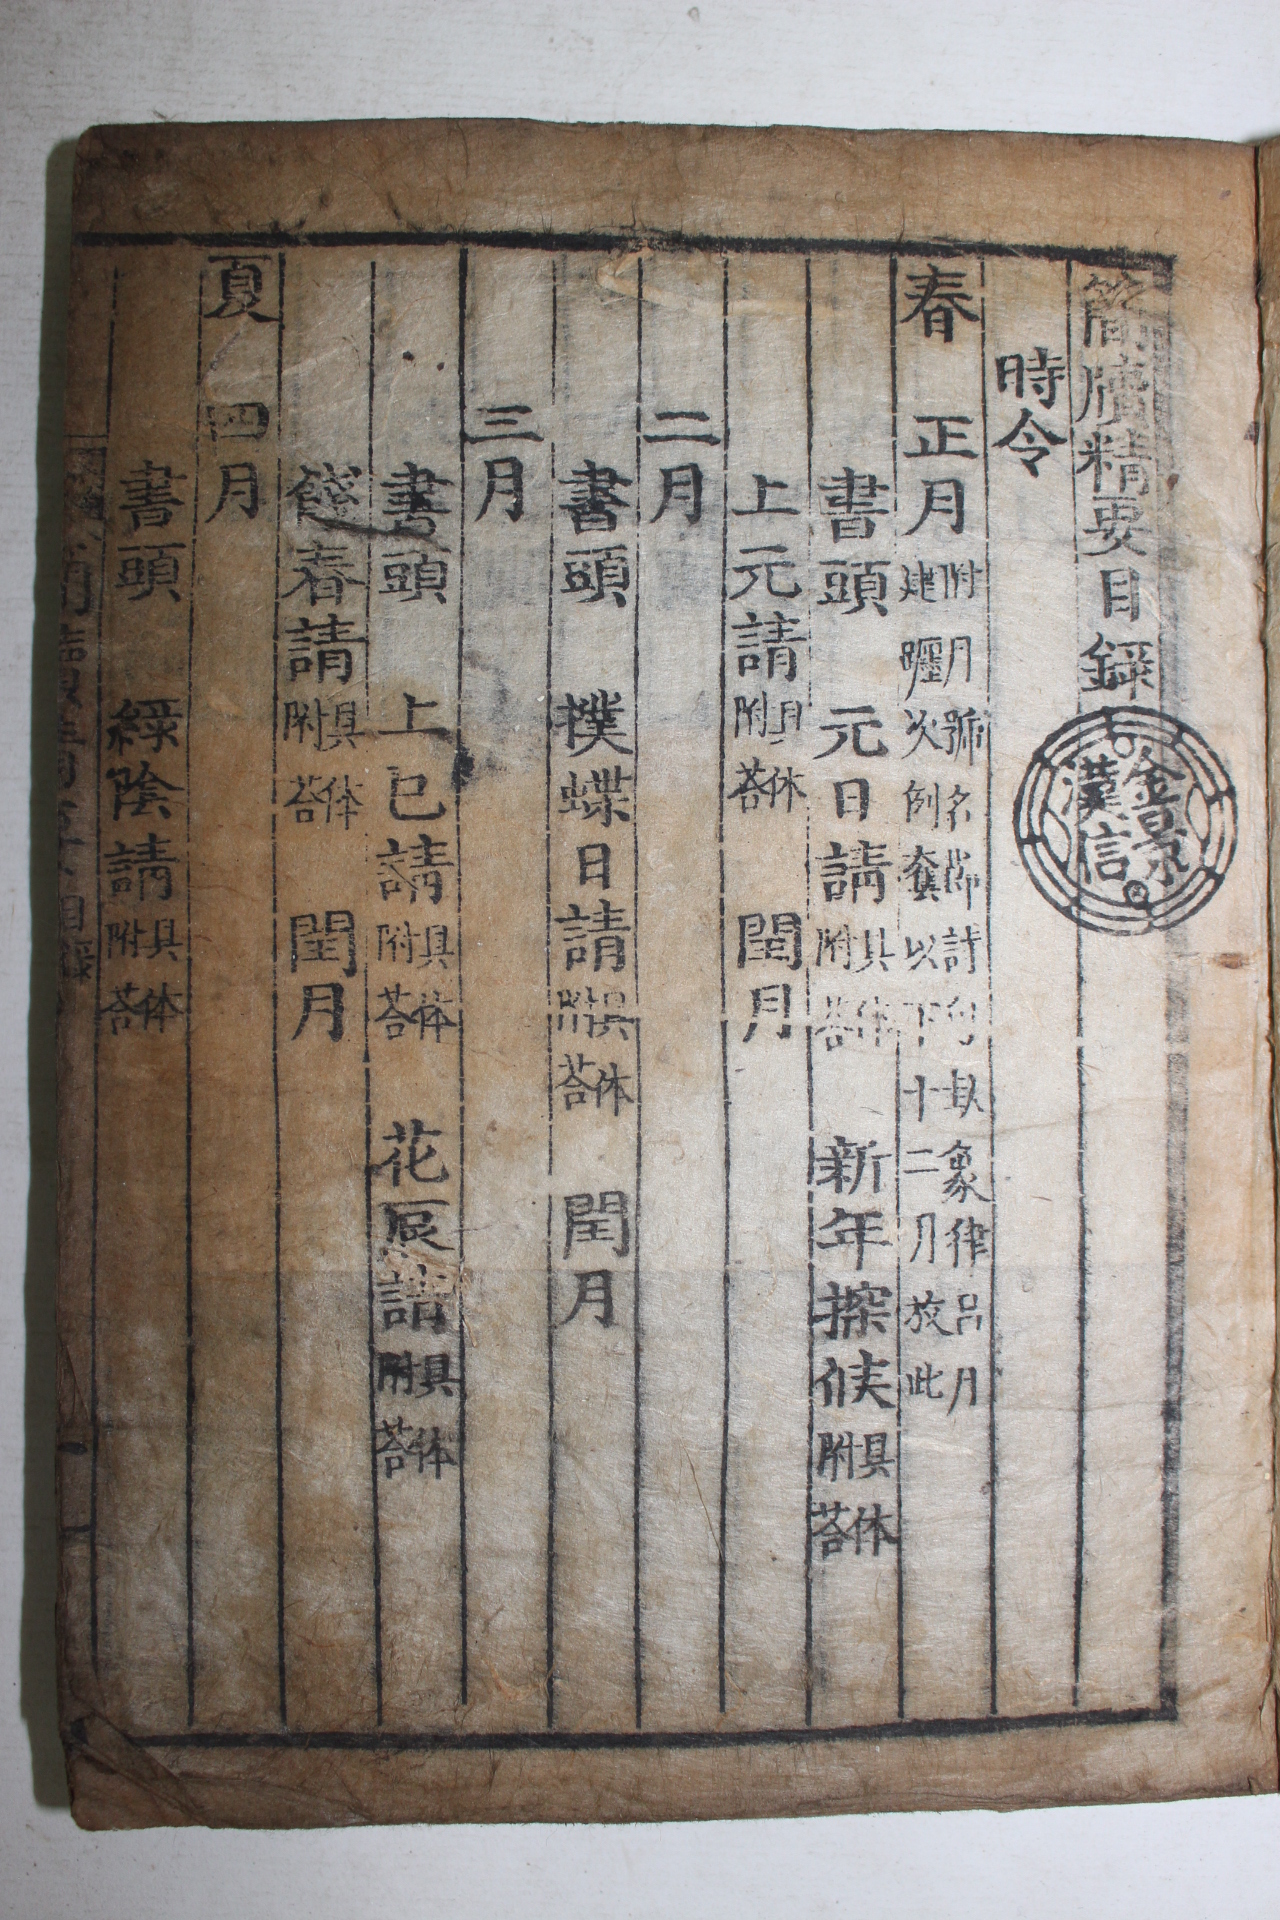 簡牘精要目錄
時令
春 正月 附月號名節詩句卦象律呂月建躔次例彙以下十二月放此
書頭 元日請 附具答体 新年探候 附具答体
上元請 附具答体 閏月
二月
書頭 撲蝶日請 附具答体 閏月
三月
書頭 上巳請 附具答体 花辰請 附具答体
餞春請 附具答体 閏月
夏 四月
書頭 綠陰請 附具答体
金景漢信